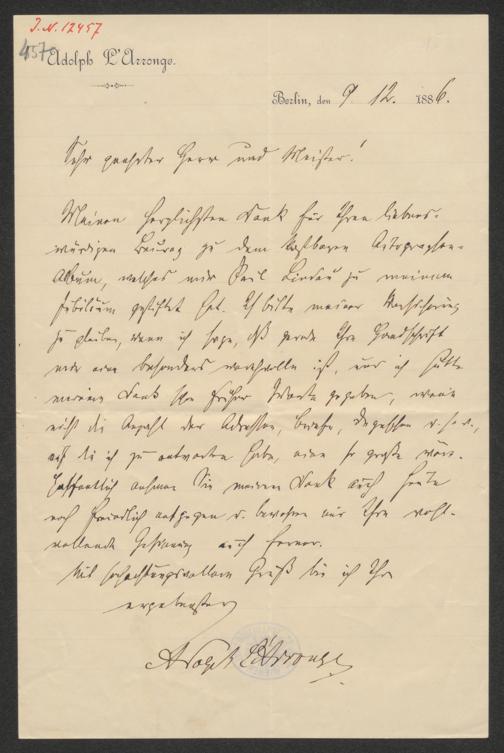 J. N. 12457
457
Adolph L'Arronge.
Berlin, den 9. 12. 1886.
Sehr geehrter Herr und Meister!
Meinen herzlichsten Dank für Ihren liebens-
würdigen Beitrag zu dem kostbaren Autographen-
Album, welches mir Paul Lindau zu meinem
Jubiläum gestiftet hat. Ich bitte meiner Versicherung
zu glauben, wenn ich sage, daß gerade Ihre Handschrift
mir eine besonders werthvolle ist, und ich hätte
meinem Dank schon früher Worte gegeben, wenn
nicht die Anzahl der Adressen, Briefe, Depeschen u. s. w.,
auf die ich zu antworten habe, eine so große wäre.
Hoffentlich nehmen Sie meinen Dank auch heute
noch freundlich entgegen u. bewahren mir Ihre wohl-
wollende Gesinnung auch ferner.
Mit hochachtungsvollem Gruß bin ich Ihr
ergebenster
Adolph L'Arronge